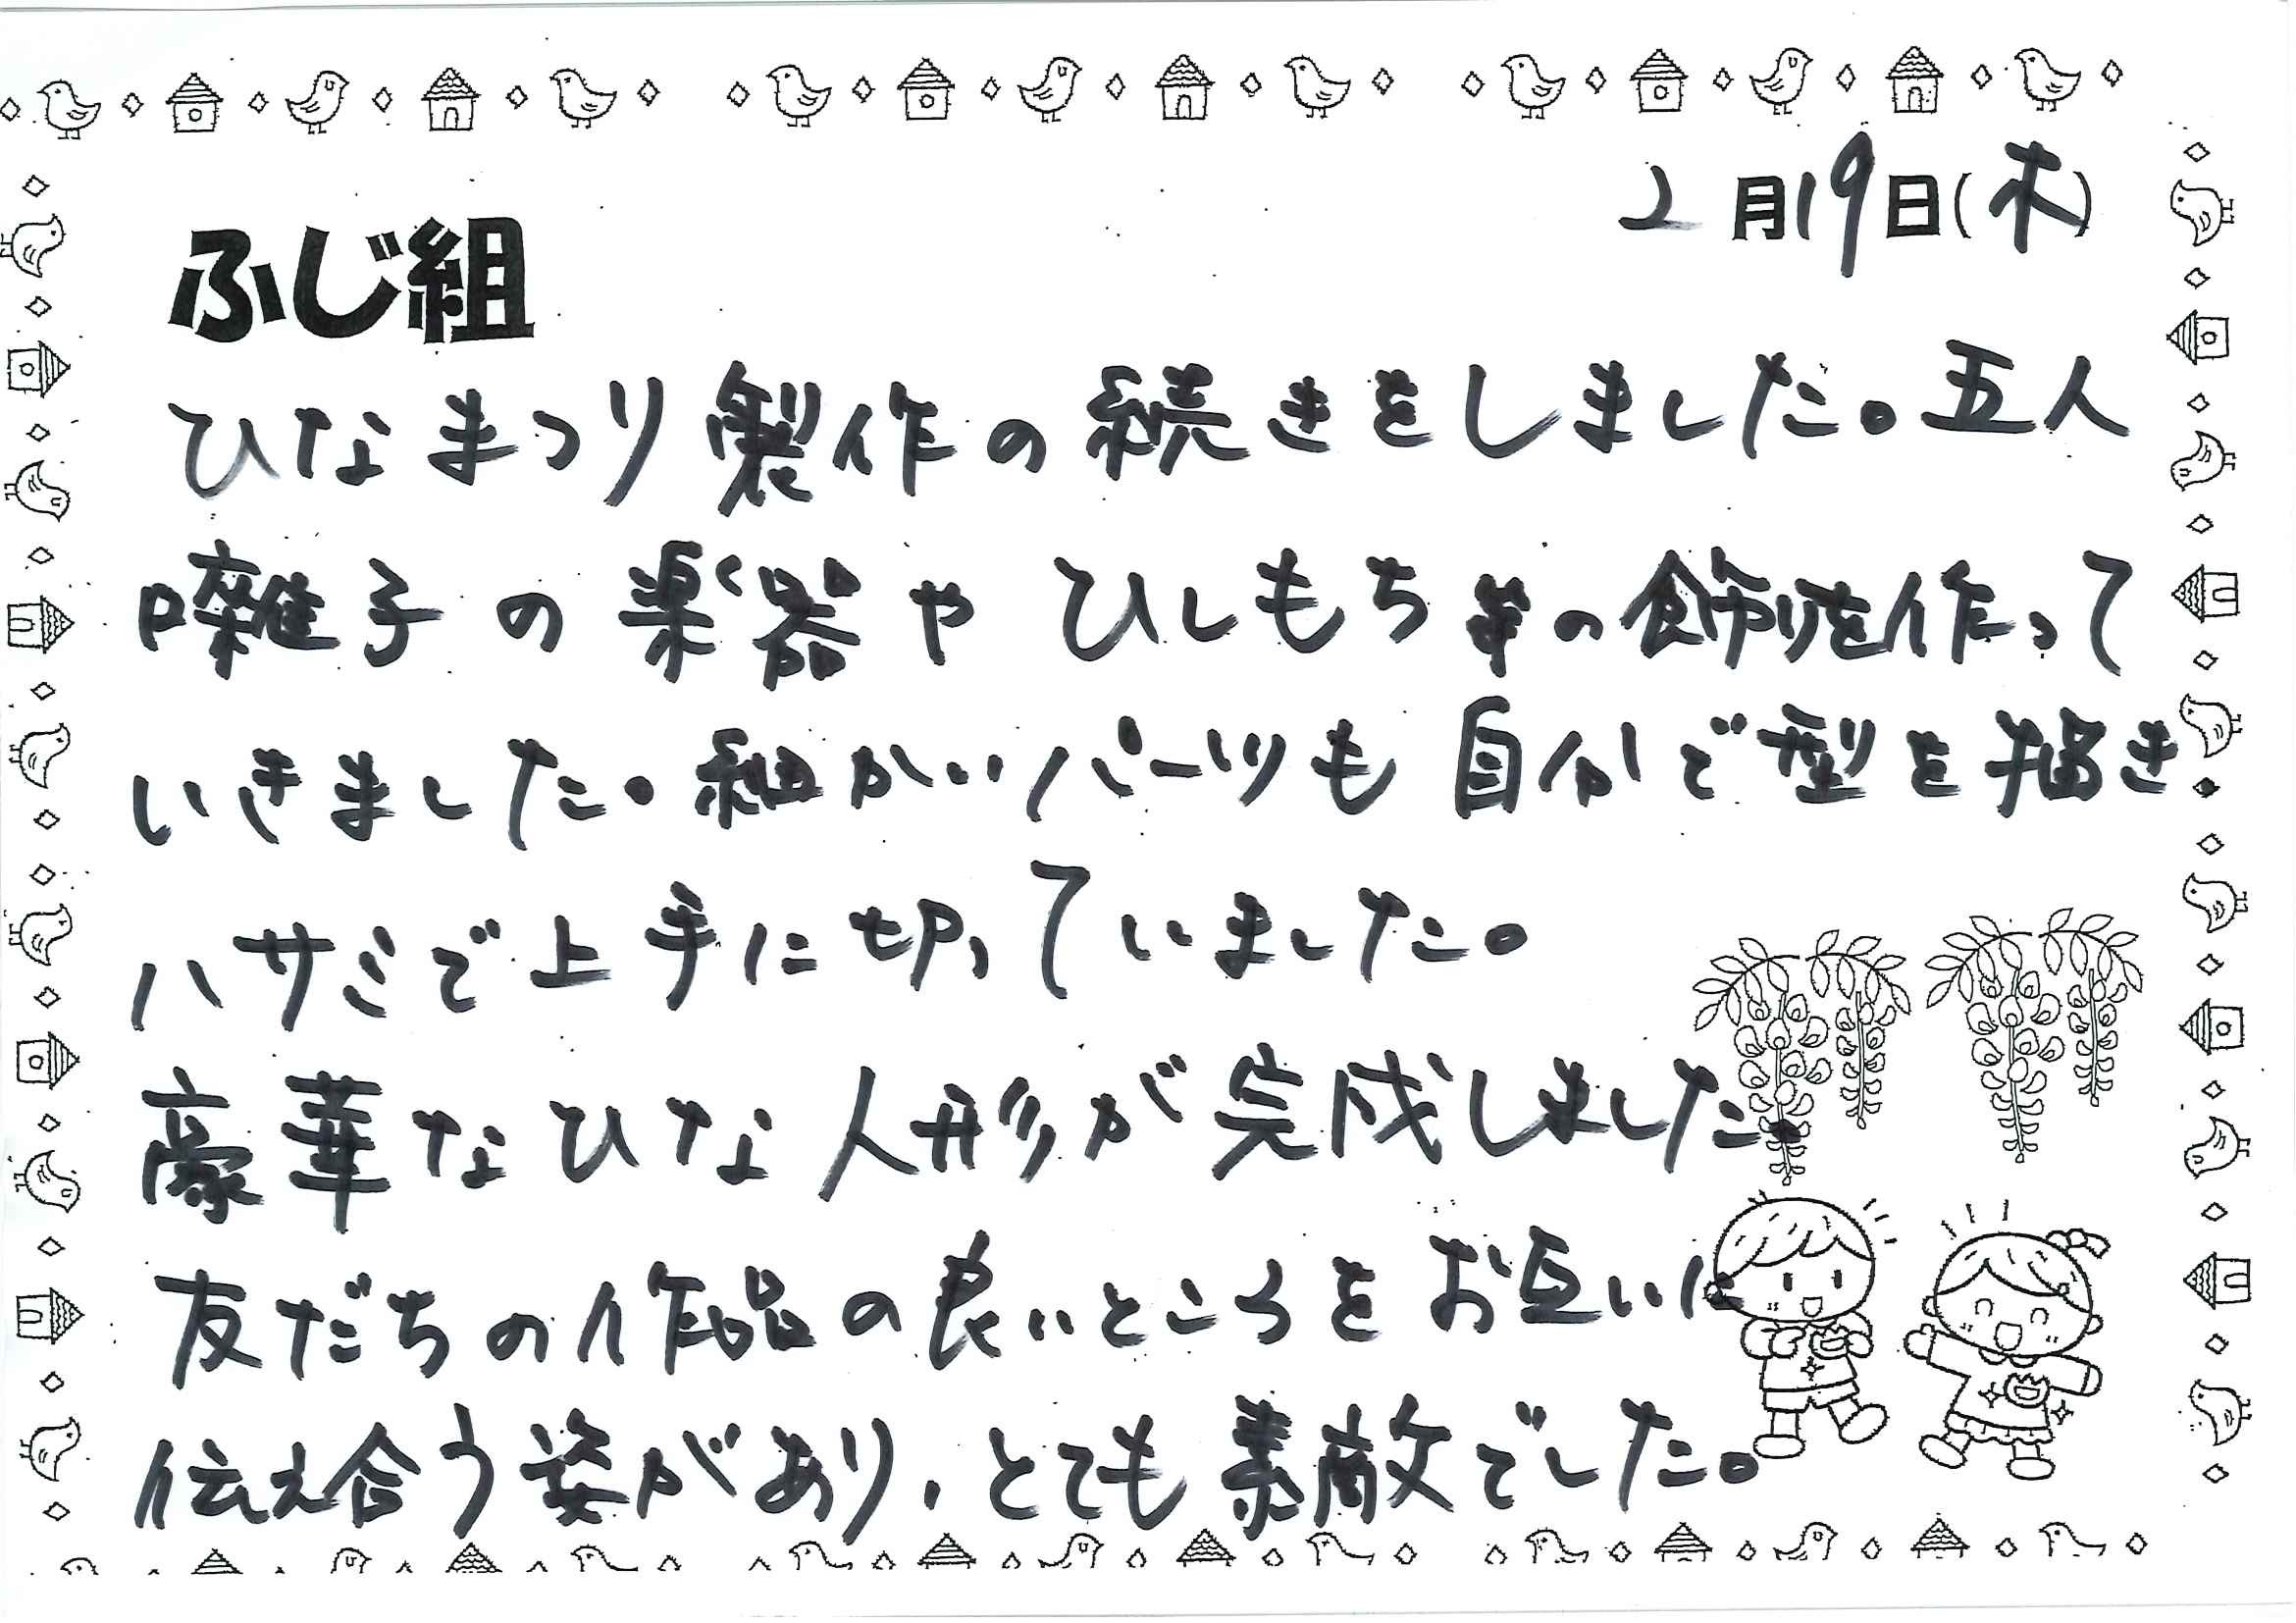 2月19日(木)
ふじ組
ひなまつり製作の続きをしました。五人
囃子の楽器やひしもち等の飾りを作って
いきました。細かいパーツも自分で型を描き
ハサミで上手に切っていました。
豪華なひな人形が完成しました。
友だちの作品の良いところをお互いに
伝え合う姿があり、とても素敵でした。